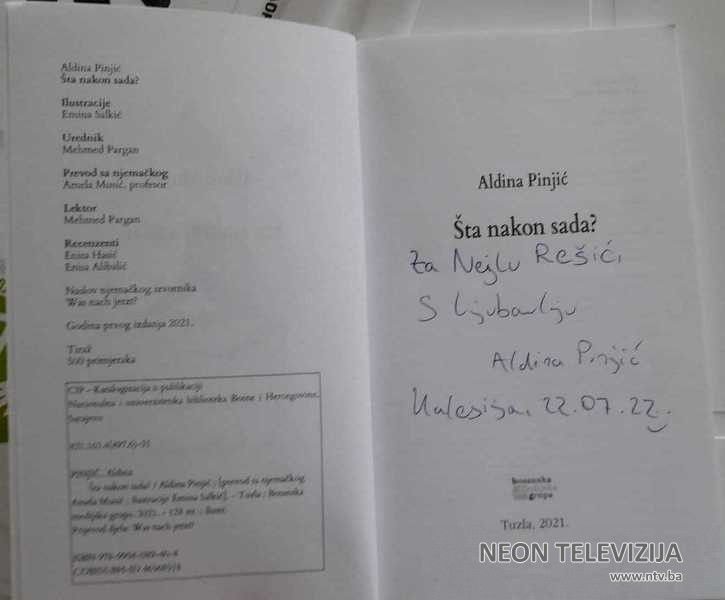 Aldina Pinjić
Šta nakon sada?
Ilustracije
Emina Salkić
Urednik
Mehmed Pargan
Prevod sa njemačkog
Amela Musić, profesor
Lektor
Mehmed Pargan
Recenzenti
Enisa Alibalić
Naslov njemačkog izvornika
Was nach jetzt?
Godina prvog izdanja 2021.
Tiraž
500 primjeraka
CIP - Katalogizacija u publikaciji
Nacionalna i univerzitetska biblioteka Bosne i Hercegovine,
Sarajevo
PINJIĆ, Aldina
Šta nakon sada? / Aldina Pinjić ; [prevod sa njemačkog
Amela Musić ; ilustracije Emina Salkić]. - Tuzla : Bosanska
medijska grupa, 2021. - 128 str. : ilustr.
Prijevod djela: Was nach jetzt?
Aldina Pinjić
Šta nakon sada?
Za Nejlu Rešić,
S ljubavlju
Aldina Pinjić
Kalesija, 22.07.22.
bosanska
medijska
grupa
Tuzla, 2021.
NEON TELEVIZIJA
www.ntv.ba